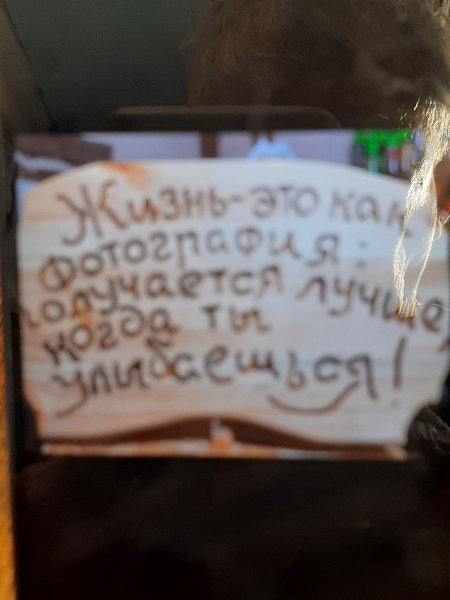 Жизнь-это как
фотография:
получается лучше,
когда ты
улыбаешься!